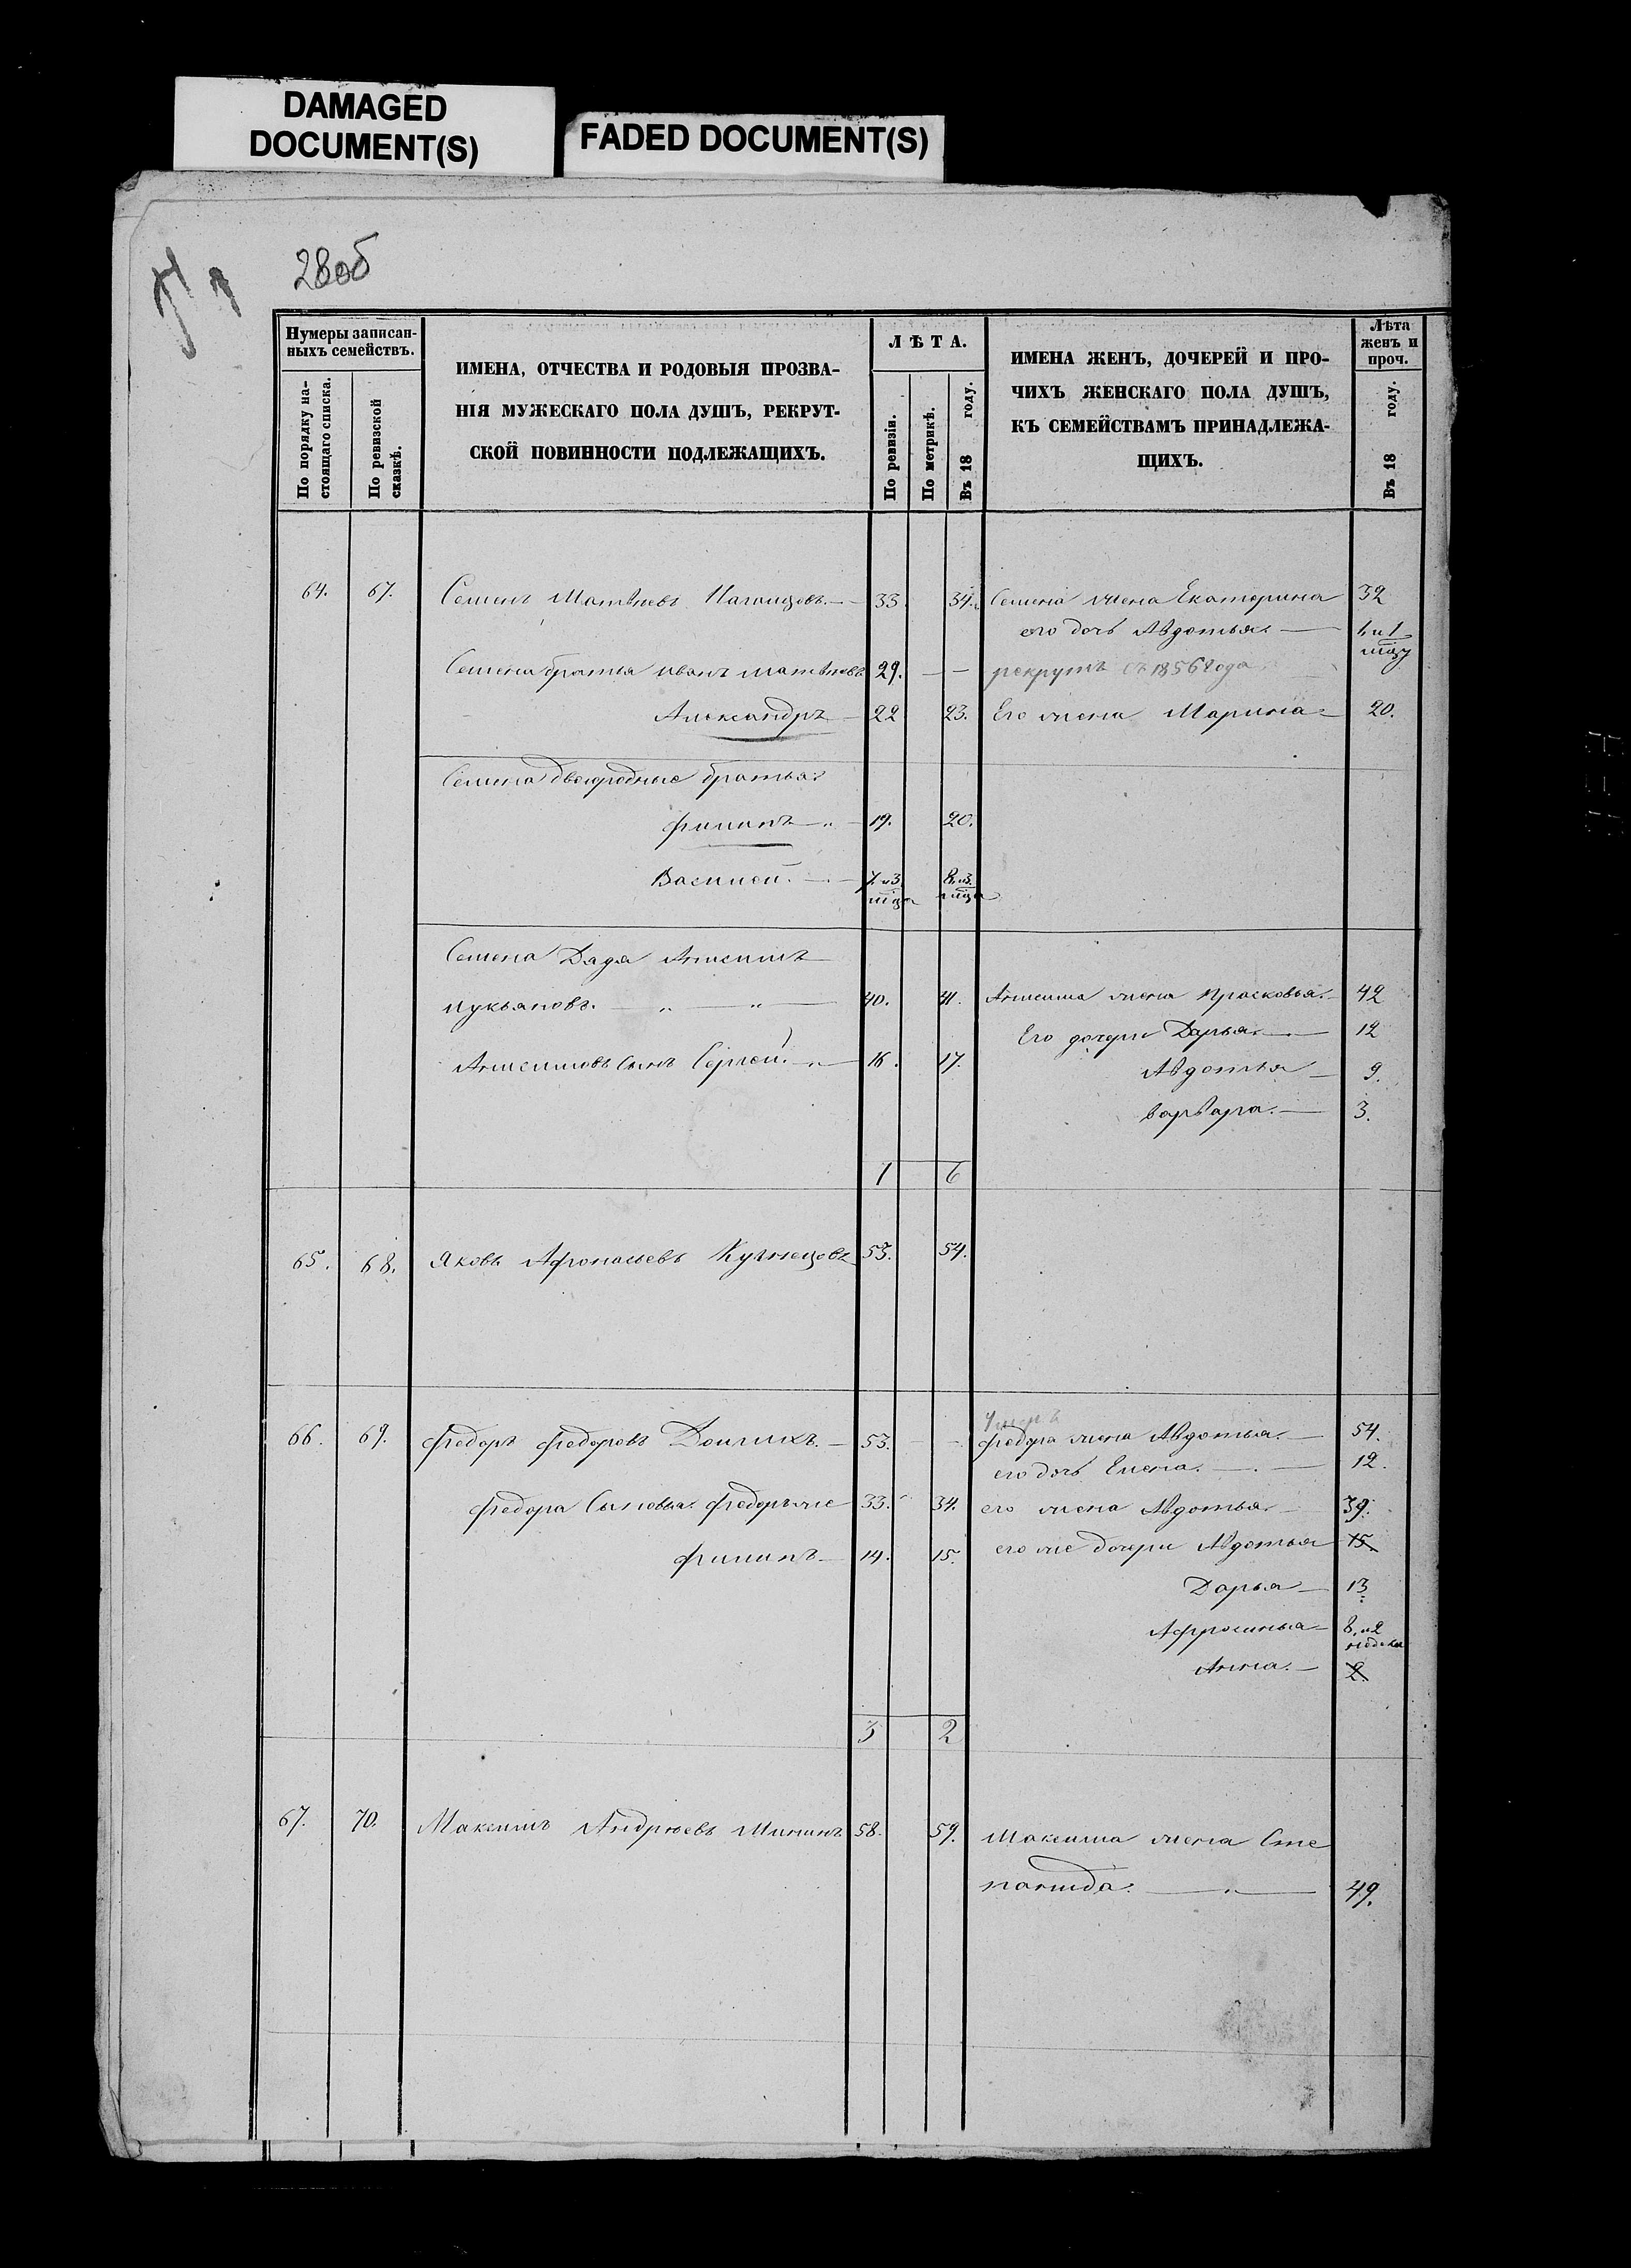 DAMAGED
DOCUMENT(S)
FADED DOCUMENT(S)
28об
Нумеры записан-
ныхъ семействъ.
По порядку на-
стоящаго списка.
По ревизской
сказкѣ.
ИМЕНА, ОТЧЕСТВА И РОДОВЫЯ ПРОЗВА-
НІЯ МУЖЕСКАГО ПОЛА ДУШЪ, РЕКРУТ-
СКОЙ ПОВИННОСТИ ПОДЛЕЖАЩИХЪ.
ЛѢТА.
По ревизіи.
По метрикѣ.
Въ 18 году.
ИМЕНА ЖЕНЪ, ДОЧЕРЕЙ И ПРО-
ЧИХЪ ЖЕНСКАГО ПОЛА ДУШЪ,
КЪ СЕМЕЙСТВАМЪ ПРИНАДЛЕЖА-
ЩИХЪ.
Лѣта
женъ и
проч.
Въ 18 году.
64. 67. Семенъ Матвѣевъ 33. 34. Семена жена Екатерина 32
его дочь Авдотья. 1. и 1 мцу
Семена братья иванъ матвѣевъ 29. — рекрутъ съ 1856 года
Александръ 22 23. Его жена Марина 20.
Семена двоюродные братья:
филипъ 19. 20.
Василей. 7. и 3. мца 8. и 3. мца
Семена Дядя Анисимъ
лукьяновъ. 40. 41. Анисима жена прасковья. 42
Его дочери Дарья. 12
Анисимовъ сынъ Сергей. 16. 17. Авдотья 9.
варвара. 3.
1 6
65. 68. Яковъ Афонасьевъ Кузнецовъ 53. 54.
умеръ
66. 69. федоръ федоровъ 53. — федора жена Авдотья. 54.
его дочь Елена. 12.
федора сыновья. федоръ же 33. 34. его жена Авдотья 39.
филипъ 14. 15. его же дочери Авдотья 15
Дарья 13
Афросинья 8. и 2 недели
Анна. 2.
3 2
67. 70. Максимъ Андреевъ Мининъ 58. 59. Максима жена Сте
понида. 49.